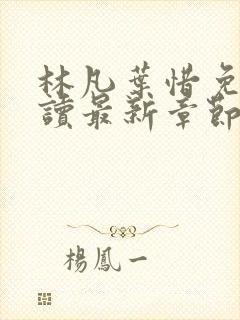 林凡葉惜免
讀最新章節
楊鳳一